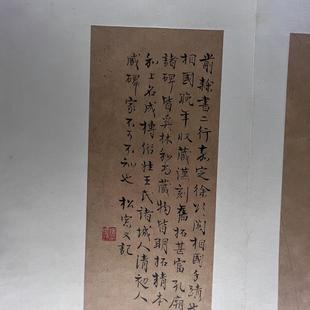 前隸書二行嘉定徐㣲閣相國手蹟也
相國晚年收藏漢刻舊拓甚富孔廟
諸碑皆奚林和尚藏物皆明拓精本
和上名成榑俗姓王氏諸城人清初人
藏碑家不可不知也 松窗又記